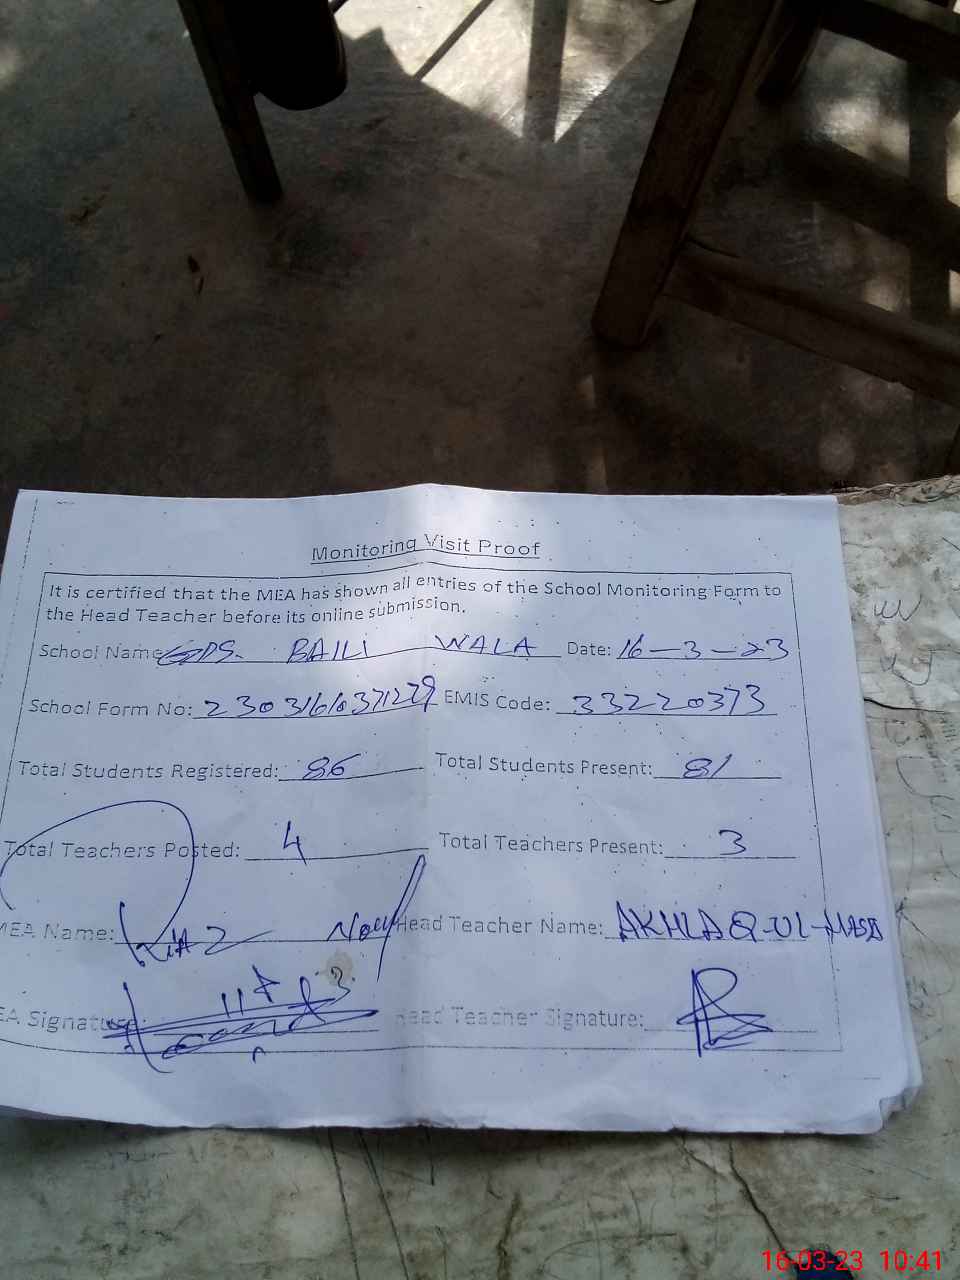 Monitoring Visit Proof
It is certified that the MEA has shown all entries of the School Monitoring Form to
the Head Teacher before its online submission.
School Name GPS. BAILI WALA Date: 16-3-23
School Form No: EMIS Code: 33220373
Total Students Registered: 86 Total Students Present: 81
Total Teachers Posted: 4 Total Teachers Present: 3
MEA Name: Head Teacher Name: AKHLAQ-UL-HASSAN
EA Signature: Head Teacher Signature:
16-03-23 10:41